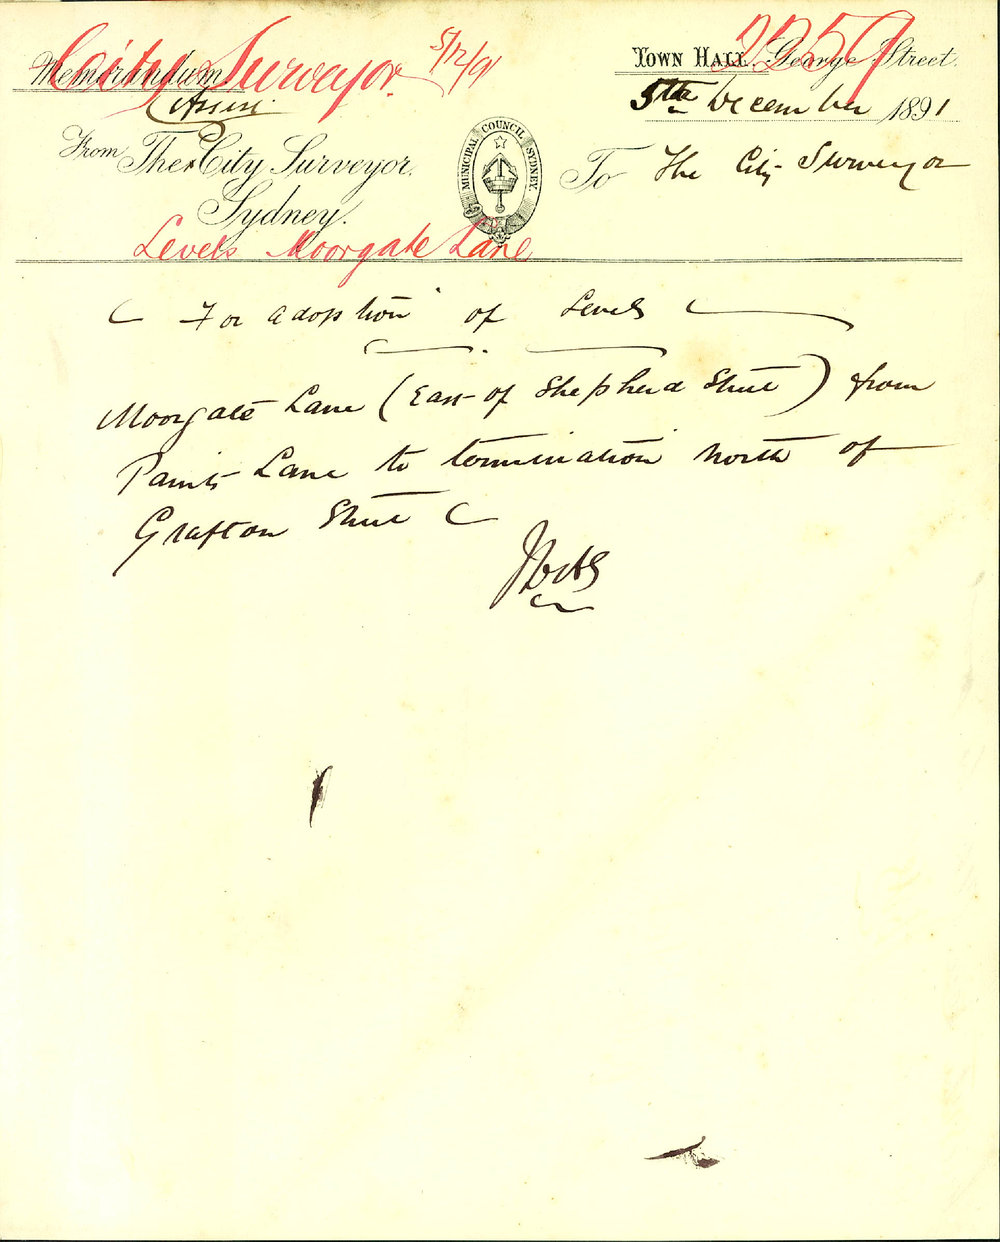 City Surveyor. 5/12/91
2259
Memorandum.
Town Hall. George Street.
5th December 1891
From The City Surveyor.
Sydney.
MUNICIPAL COUNCIL SYDNEY.
To The City Surveyor
Levels Moorgate Lane
For adoption of Levels
Moorgate Lane (East of Shepherd Street) from
Paints Lane to termination north of
Grafton Street